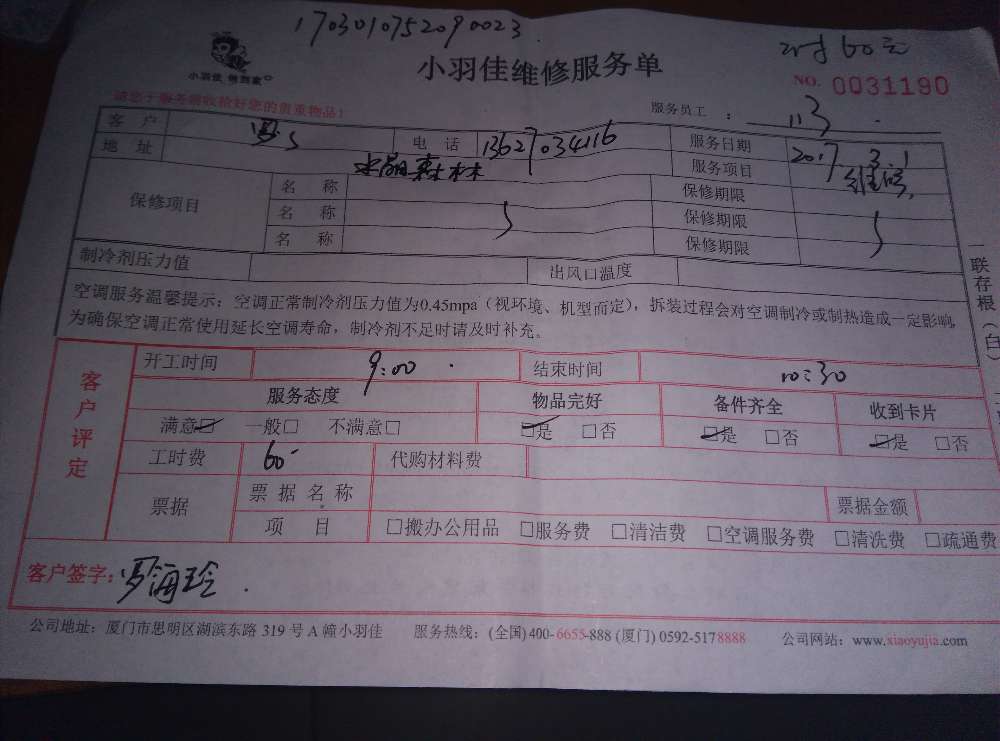 170301075209​0023.
对 60元
小羽佳 修到家
小羽佳维修服务单
NO. 0031190
请您于服务前收捡好您的贵重物品!
服务员工 : 113
客 户 电 话 13627034116 服务日期 2017.3.1
地 址 水晶森林 服务项目 维修
保修项目 名 称 保修期限
名 称 保修期限
名 称 保修期限
制冷剂压力值 出风口温度
空调服务温馨提示:空调正常制冷剂压力值为0.45mpa(视环境、机型而定),拆装过程会对空调制冷或制热造成一定影响,
为确保空调正常使用延长空调寿命,制冷剂不足时请及时补充。
一联存根(白)
客户评定
开工时间 9:00 结束时间 10:30
服务态度 物品完好 备件齐全 收到卡片
满意☑ 一般□ 不满意□ ☑是 □否 ☑是 □否 ☑是 □否
工时费 60 代购材料费
票据 票 据 名 称 票据金额
项 目 □搬办公用品 □服务费 □清洁费 □空调服务费 □清洗费 □疏通费
客户签字: 罗海玲
公司地址:厦门市思明区湖滨东路 319 号 A 幢小羽佳 服务热线:(全国) 400-6655-888 (厦门) 0592-5178888 公司网站:www.xiaoyujia.com